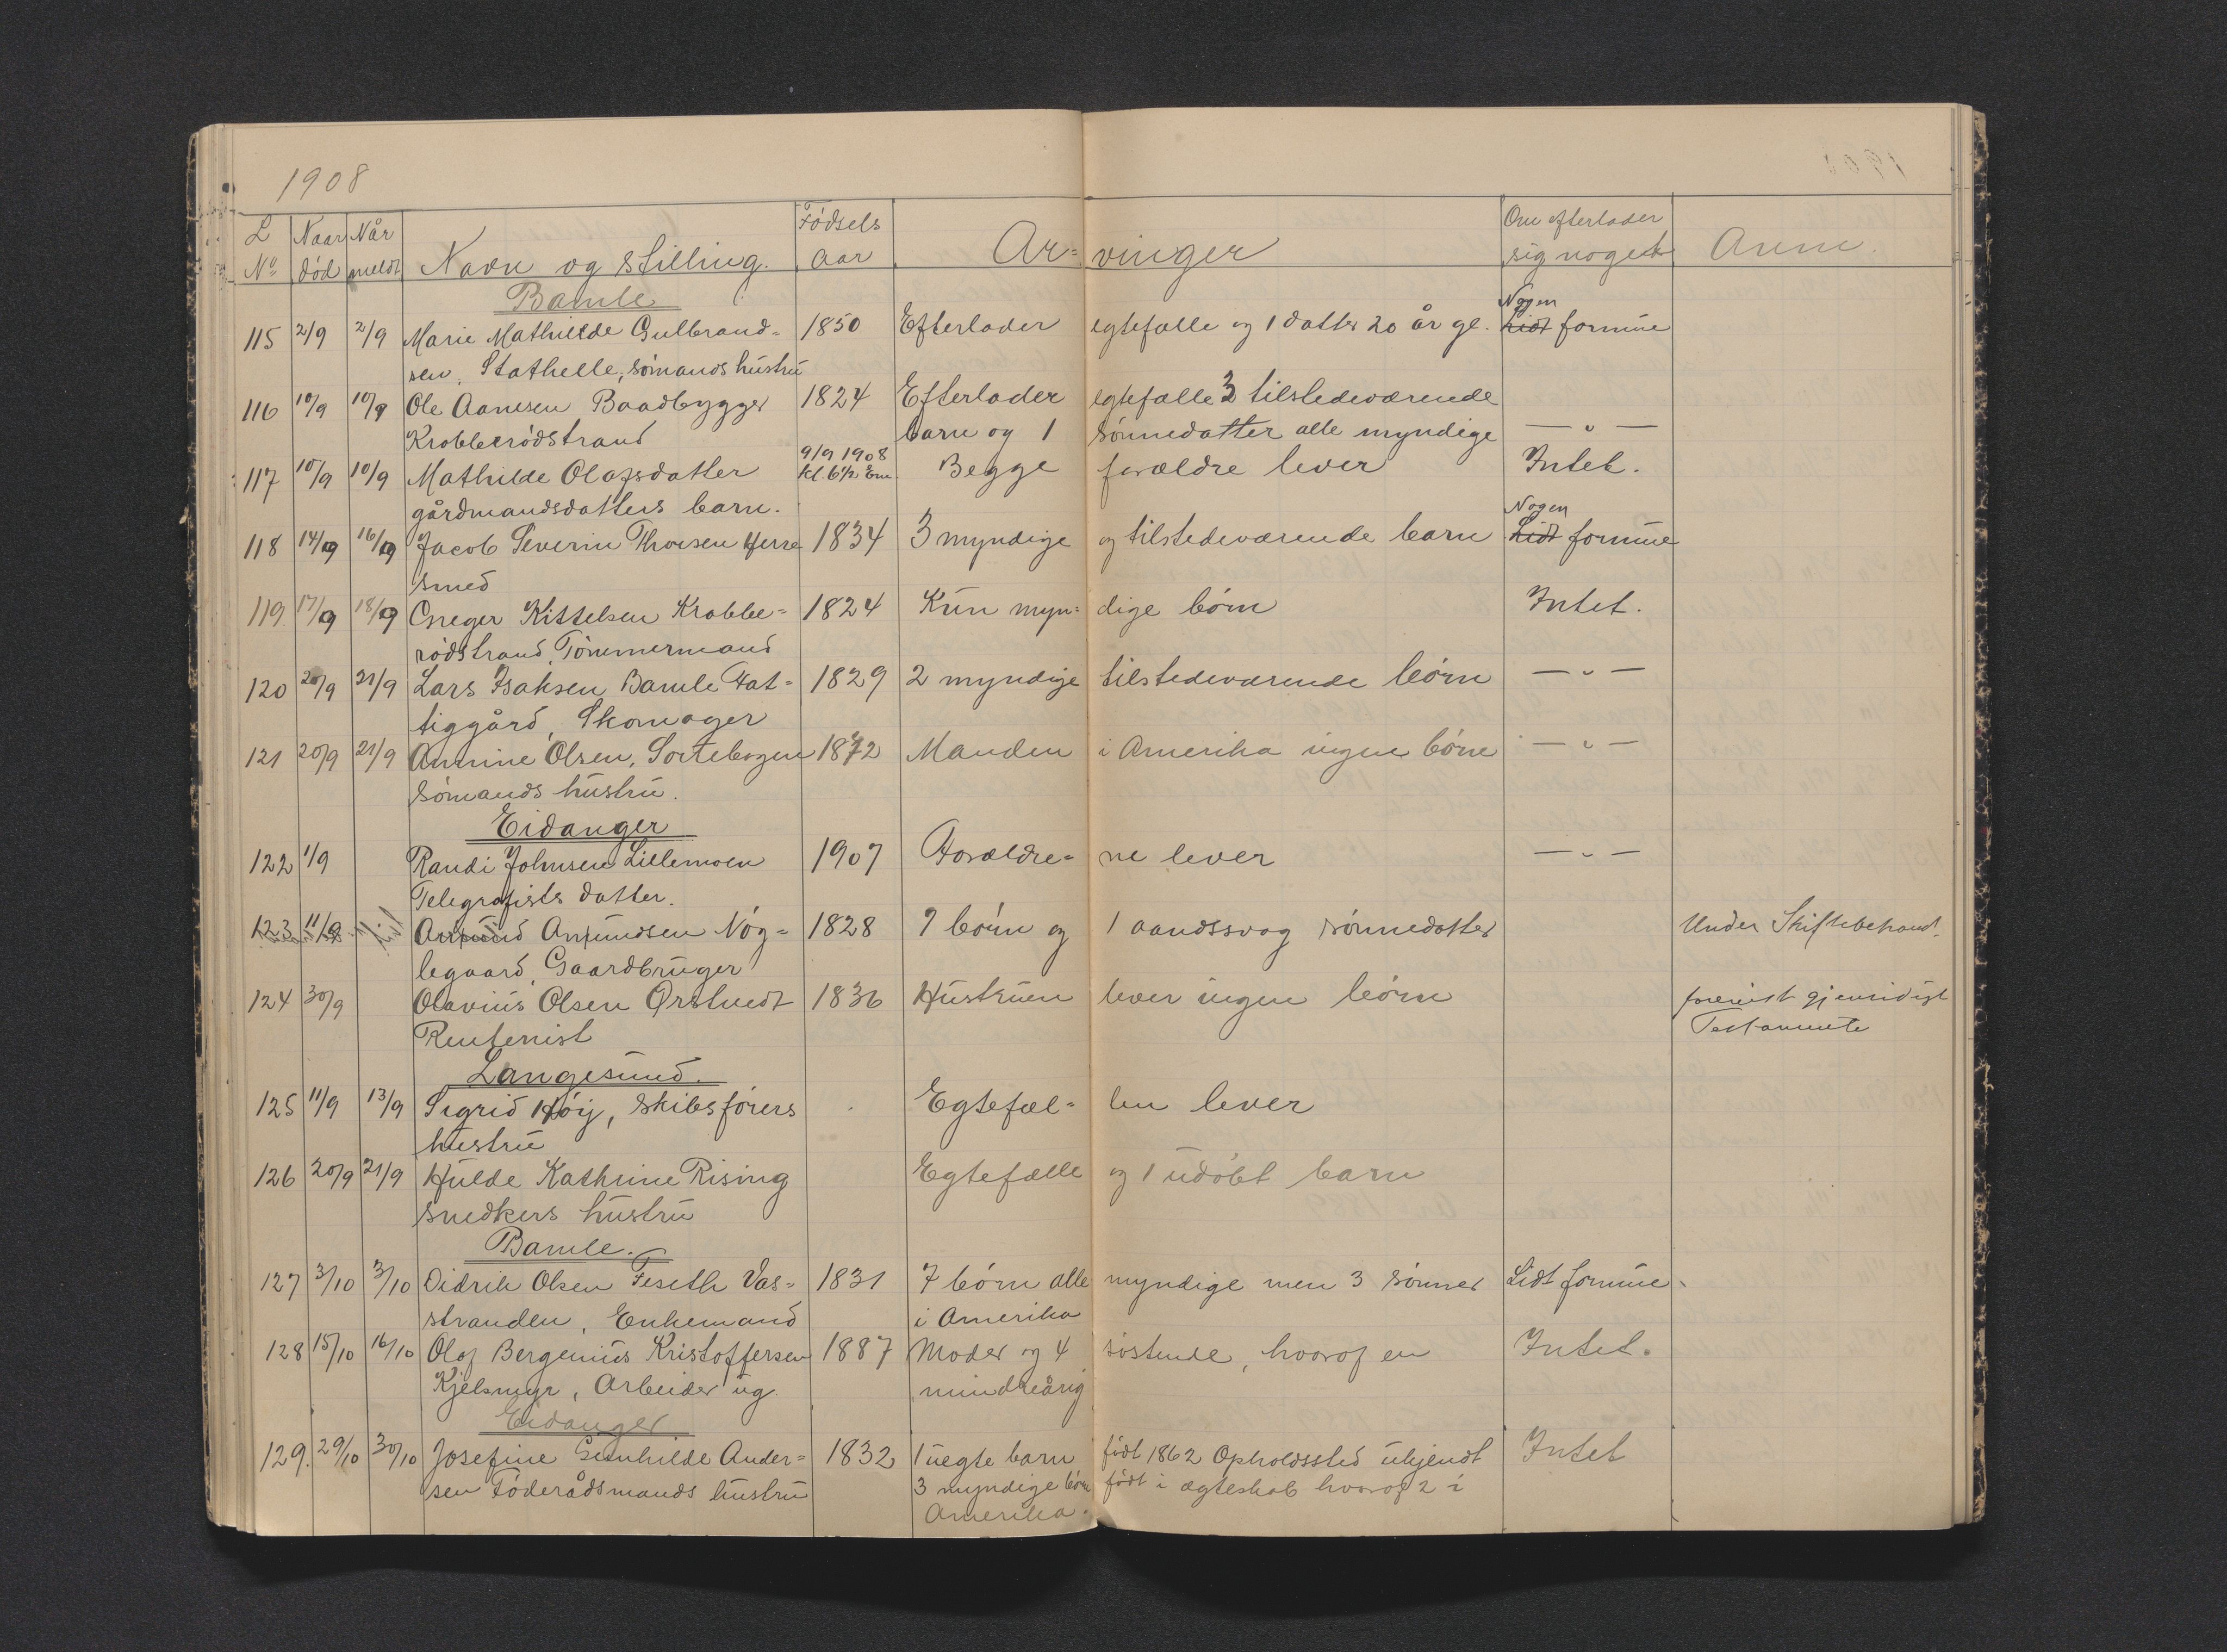 1908
L No Naar død Når meldt Navn og stilling. Fødsels aar Ar= vinger Om efterlader sig noget Anm.
Bamle
115 2/9 2/9 Marie Mathilde Gulbrand= 1850 Efterlader egtefælle og 1 datter 20 år gl. Nogen Lidt formue
sen, Stathelle, sømands hustru
116 10/9 10/9 Ole Aanesen Baadbygger 1824 Efterlader egtefælle 3 tilstedeværende
Krabberødstrand barn og 1 sønnedatter alle myndige — " —
117 10/9 10/9 Mathilde Olafsdatter 9/9 1908 kl. 6 1/2 Em. Begge forældre lever Intet.
gårdmandsdatters barn.
118 14/9 16/9 Jacob Severin Thorsen Herre 1834 3 myndige og tilstedeværende barn Nogen Lidt formue
smed
119. 17/9 18/9 Greger Kittelsen Krabbe= 1824 Kun myn= dige børn Intet.
rødstrand, Tømmermand
120 20/9 21/9 Lars Isaksen Bamle Fat= 1829 2 myndige tilstedeværende børn — " —
tiggård, Skomager
121 20/9 21/9 Annine Olsen, Sortebogen 1872 Manden i Amerika ingen børn — " —
sømands hustru.
Eidanger
122 1/9 Randi Johnsen Lillemoen 1907 Forældre= ne lever — " —
Telegrafists datter.
123 11/9 Amund Amundsen Nøg= 1828 7 børn og 1 aandssvag sønnedatter Under Skiftebehand.
legaard, Gaardbruger
124 30/9 Olavius Olsen Ørstvedt 1836 Hustruen lever ingen børn gjensidigt
Rentenist Testamente
Langesund.
125 11/9 13/9 Sigrid Høij, Skibsførers Egtefæl= len lever
hustru
126 20/9 21/9 Hulde Kathrine Rising Egtefælle og 1 udøbt barn
snedkers hustru
Bamle.
127 3/10 3/10 Didrik Olsen Feseth Vas= 1831 7 børn alle myndige men 3 sønner Lidt formue
stranden, Enkemand i Amerika
128 15/10 16/10 Olaf Bergenius Kristoffersen 1887 Moder og 4 søstende, hvoraf en Intet.
Kjelsmyr, Arbeider ug. mindreårig
Eidanger
129. 29/10 30/10 Josefine Gunhilde Ander= 1832 1 uegte barn født 1862 Opholdssted ukjendt Intet
sen Føderådsmands hustru 3 myndige børn født i ægteskab hvoraf 2 i
Amerika.